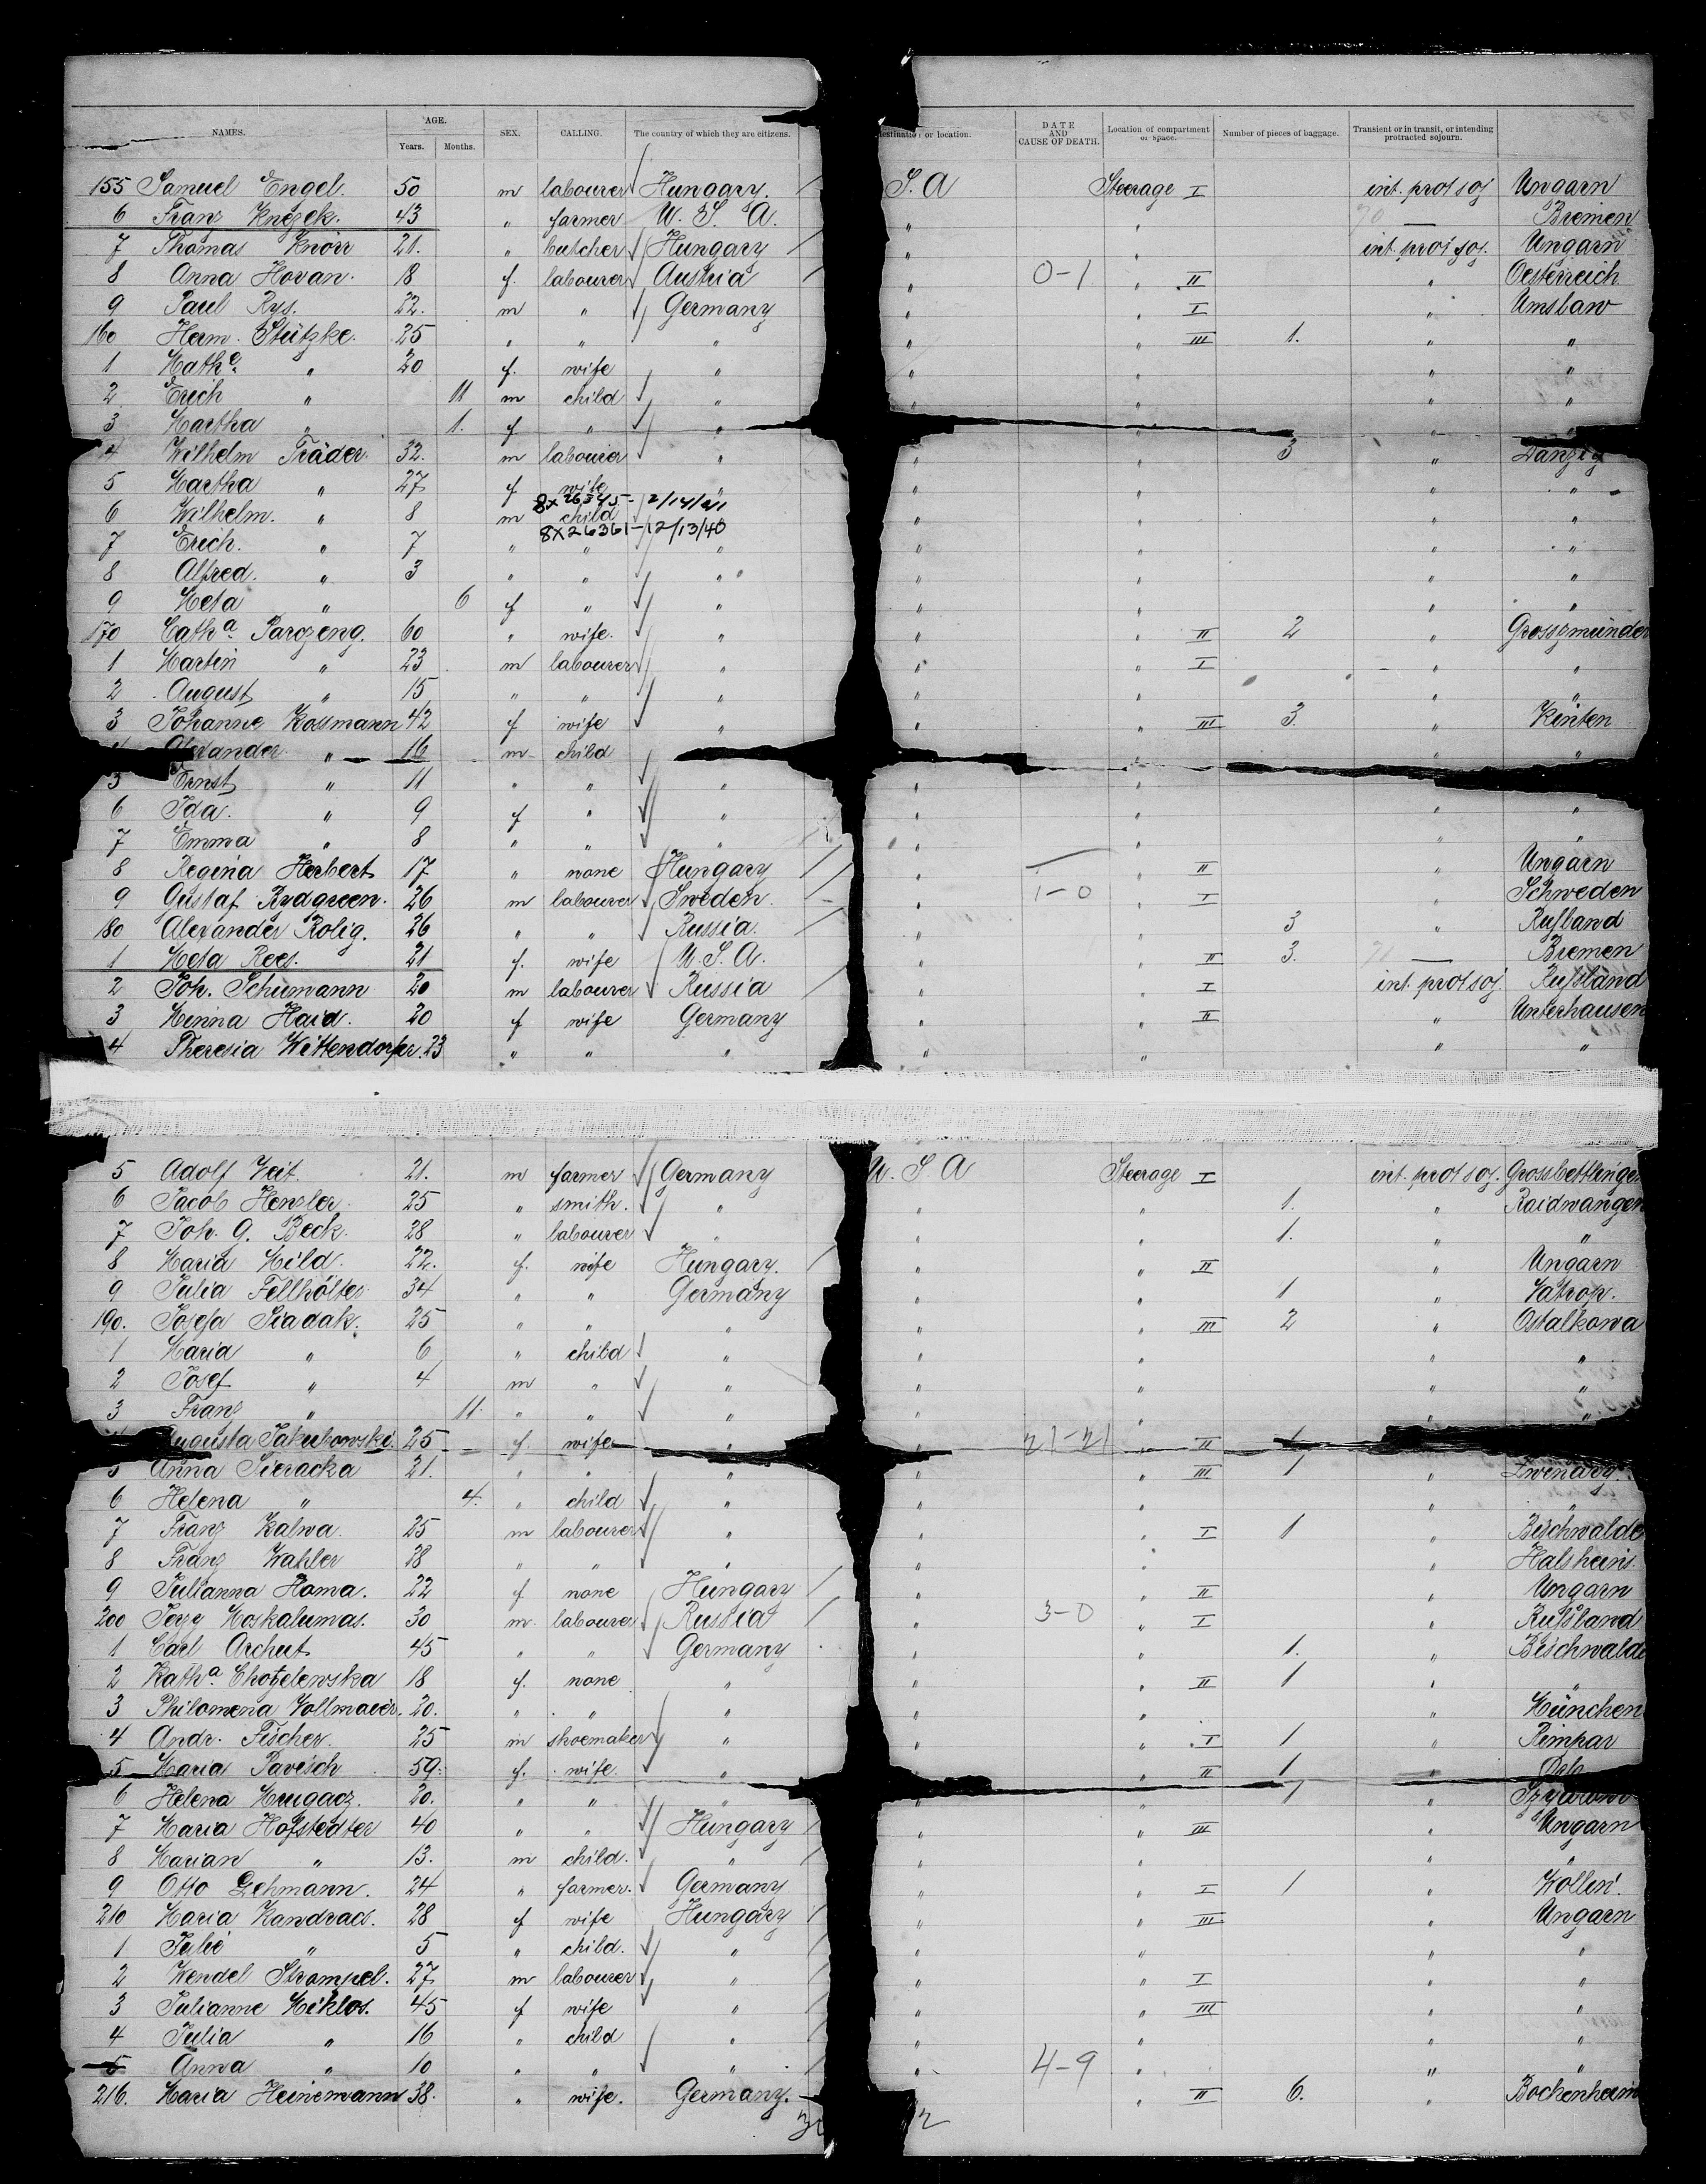 NAMES. AGE. SEX. CALLING. The country of which they are citizens. destination or location. DATE AND CAUSE OF DEATH. Location of compartment or space. Number of pieces of baggage. Transient or in transit, or intending protracted sojourn.
Years. Months.
155 Samuel Engel. 50 m labourer Hungary. S. A Steerage I int. prot soj Ungarn
6 Franz 43 " farmer U. S. A. " " — Bremen
7 Thomas Knörr 21. " butcher Hungary " " int. prot soj. Ungarn
8 Anna Hovan. 18 f. labourer Austria " 0-1 " II " Oesterreich
9 Paul Rys. 22. m " Germany " " I "
160 Herm. Stützke. 25 " " " " " III 1. " "
1 Mathe " 20 f. wife " " " " "
2 Erich " 11 m child " " " " "
3 Martha " 1. f " " " " " "
4 Wilhelm Träder. 32. m labourer " " " 3 " Danzig
5 Martha " 27 f wife " " " " "
8x26345- 2/14/41
6 Wilhelm. " 8 m child " " " "
8x26361-12/13/40
7 Erich. " 7 " " " " " " "
8 Alfred. " 3 " " " " " " "
9 Meta " 6 f " " " " " "
170 Catha. Parczeng. 60 " wife. " " " II 2 " Grosszmünder
1 Martin " 23 m labourer " " " I " "
2 August " 15 " " " " " " "
3 Johanne Kossmann 42 f wife " " " III 3. " Kinten
4 Alexander " 16 m child " "
5 Ernst " 11 " " " " "
6 Ida. " 9 f " " " " " "
7 Emma " 8 " " " " " " "
8 Regina Herbert 17 " none Hungary " — " II " Ungarn
9 Gustaf Rydgreen. 26 m labourer Sweden. " 1-0 " I " Schweden
180 Alexander Rolig. 26 " " Russia. " " 3 " Rußland
1 Meta Rees. 21 f. wife U. S. A. " " II 3. — Bremen
2 Joh. Schumann 20 m labourer Russia " " I int. prot soj. Rußland
3 Minna Haid. 20 f wife Germany " " II " Unterhausen
4 Theresia Wittendorfer. 23 " " " " " " "
5 Adolf Veit. 21. m farmer Germany U. S A Steerage I int. prot soj. Grossbettlingen
6 Jacob Henzler. 25 " smith. " " " 1. " Raidwangen
7 Joh. G. Beck. 28 " labourer " " " 1. " "
8 Maria Mild. 22. f. wife Hungary. " " II " Ungarn
9 Julia Fellhölter 34 " " Germany " " 1 "
190. Josefa Siadak. 25 " " " " " III 2 " Ostalkowa
1 Maria " 6 " child " " " " "
2 Josef " 4 m " " " " " "
3 Franz " 11. " " " " " " "
Augusta Jakubowski. 25 f. wife " " 21-21 " II 1
5 Anna Sieracka 21. " " " " " III 1 "
6 Helena " 4. " child " " " " "
7 Franz Kalwa. 25 m labourer " " " I 1 " Bischwalde
8 Franz Wahler 28 " " " " " "
9 Julianna Homa. 22 f none Hungary " " II " Ungarn
200 Jerzy Moskalumas. 30 m. labourer Russia " 3-0 " I " Rußland
1 Carl Archut 45 " " Germany " " 1. " Bischwalde
2 Katha. Chotzelewska 18 f. none " " " II 1 " "
3 Philomena Vollmaier. 20. " " " " " " München
4 Andr. Fischer. 25 m shoemaker " " " I 1 " Rimpar
5 Maria Pavisch 59. f. wife " " " II 1 "
6 Helena Mrugacz. 20. " " " " " 1 "
7 Maria Hofstedter 40 " " Hungary " " III " Ungarn
8 Marian " 13. m child. " " " " "
9 Otto Lehmann. 24 " farmer. Germany " " I 1 " Wollin.
210 Maria Kandracs. 28 f wife Hungary " " III " Ungarn
1 Julie " 5 " child. " " " " "
2 Wendel Strompel. 27 m labourer " " " I " "
3 Julianne Miklos. 45 f wife " " " III " "
4 Julia " 16 " child " " " " "
5 Anna " 10 " " " " 4-9 " " "
216. Maria Heinemann 38. " wife. Germany. " " II 6. " Bockenheim